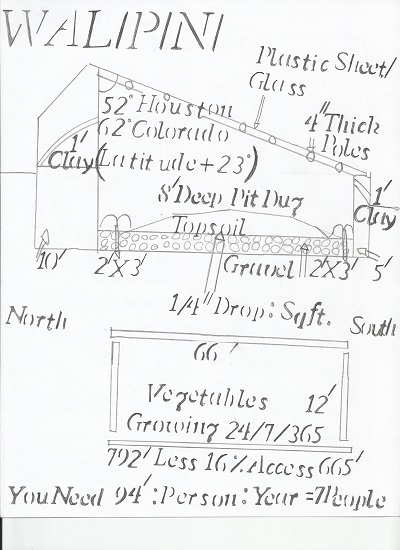 WALIPINI
Plastic Sheet/
Glass
52° Houston
62° Colorado
(Latitude+23°)
4" Thick
Poles
1'
Clay
8' Deep Pit Dug
1'
Clay
Topsoil
10'
2'X3'
Gravel
2'X3'
5'
1/4" Drop: Sqft.
North
South
66'
Vegetables
12'
Growing 24/7/365
792' Less 16% Access 665'
You Need 94' : Person : Year = 7 People